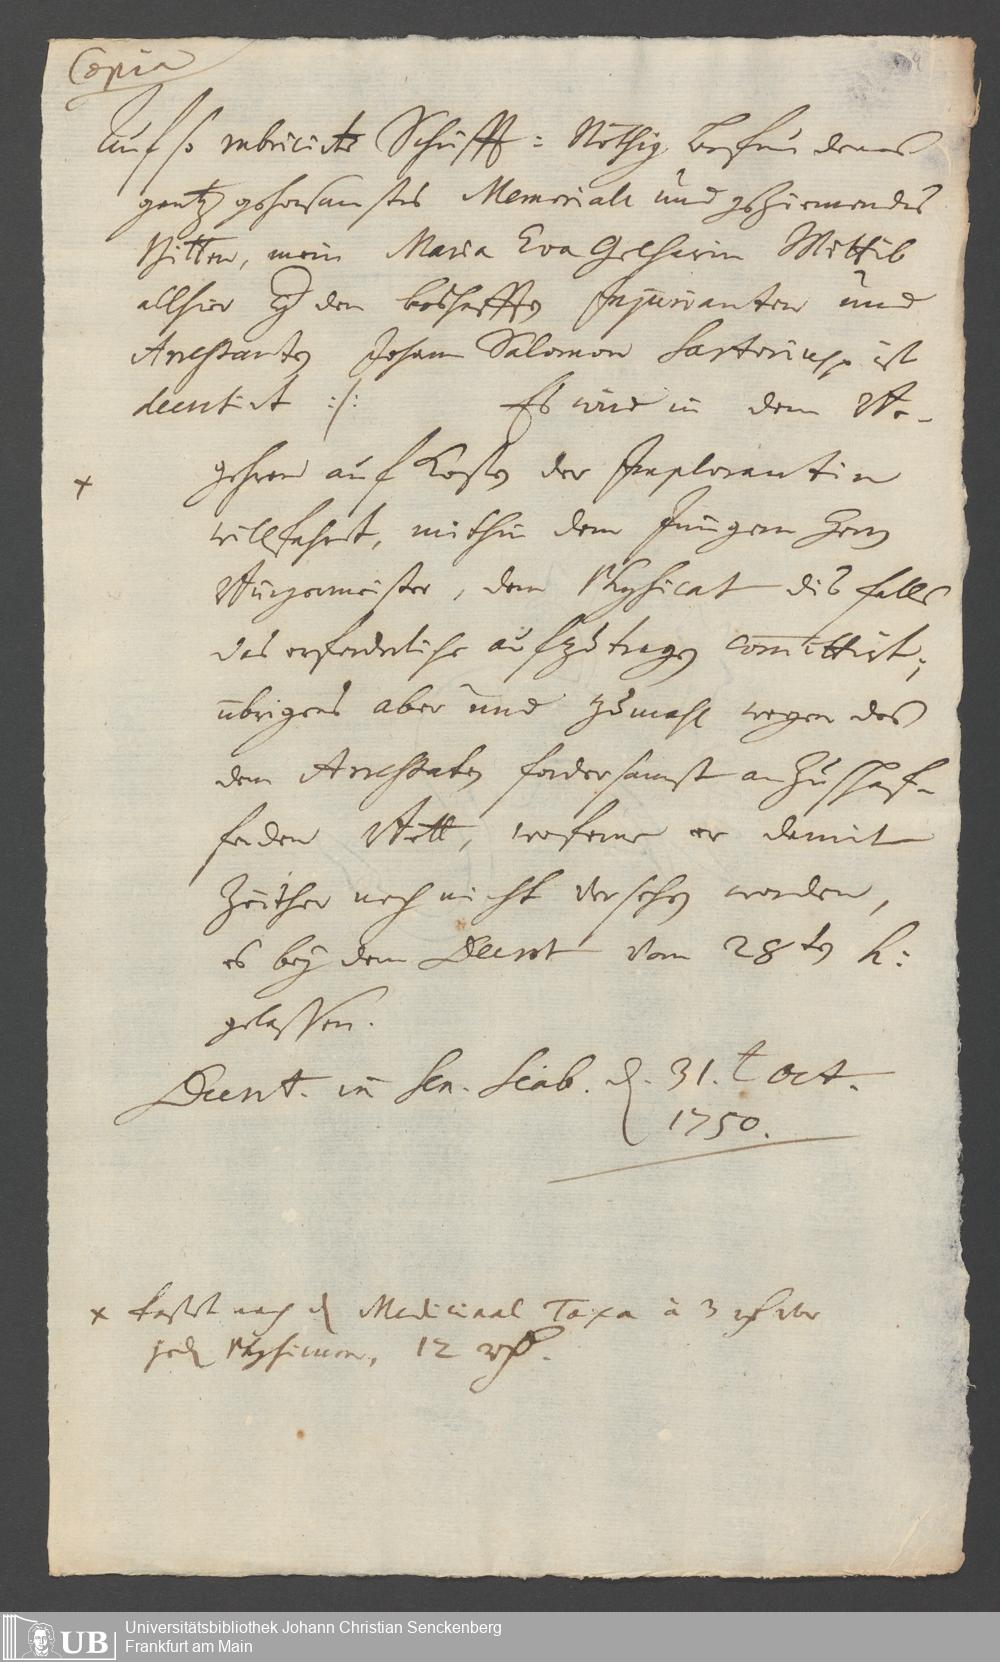 Copia
Auf so rubricirte Schrifft: Nöthig befundenes
gantz gehorsamstes Memoriale und geziemendes
Bitten, mein Maria Eva Gelharin Wittib
allhier den boshafften Injurianten und
Arrestanten Johann Salomon Sartorius ist
decretirt :/: Es wird in dem Be-
x gehren auf Kosten der Implorantin
willfahrt, mithin dem Jüngern Herrn
Burgermeister, dem Physicat disfalls
das erforderliche aufzutragen committirt;
übrigens aber und zumahl wegen des
dem Arrestaten fordersamst anzuschaf-
fenden Bett, wofern er damit
zeither noch nicht versehen worden,
es bey dem Decret vom 28ten h:
gelassen.
Decret. in Sen. Scab. d. 31.t Oct.
1750.
x kostet nach d Medicinal Taxa à 3 vor
jed Physicum, 12
Universitätsbibliothek Johann Christian Senckenberg
Frankfurt am Main
UB